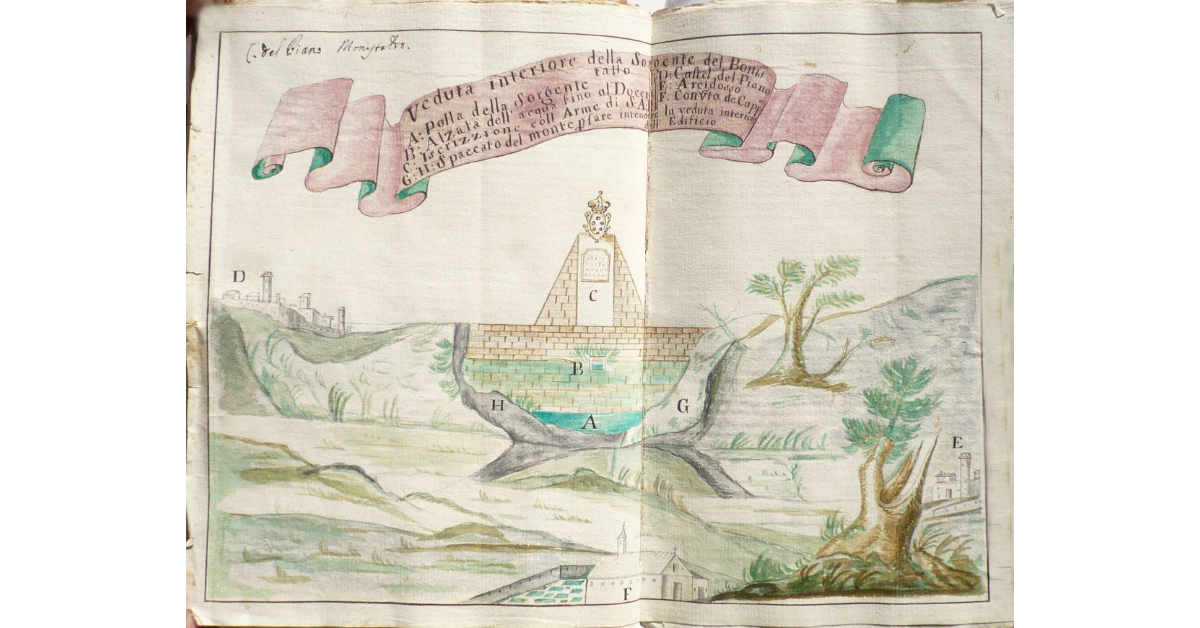 C. del Piano
Veduta interiore della Sorgente del Bonis
tallo
A: Polla della Sorgente
B: Alzata dell'acqua fino al Docen
C: Iscrizzione coll Arme di S.A.
G: H: Spaccato del monte p̱ fare intendere la veduta interio
dell Edificio
D: Castel del Piano
E: Arcidosso
F: Convto de Capp
D
C
B
H
A
G
E
F